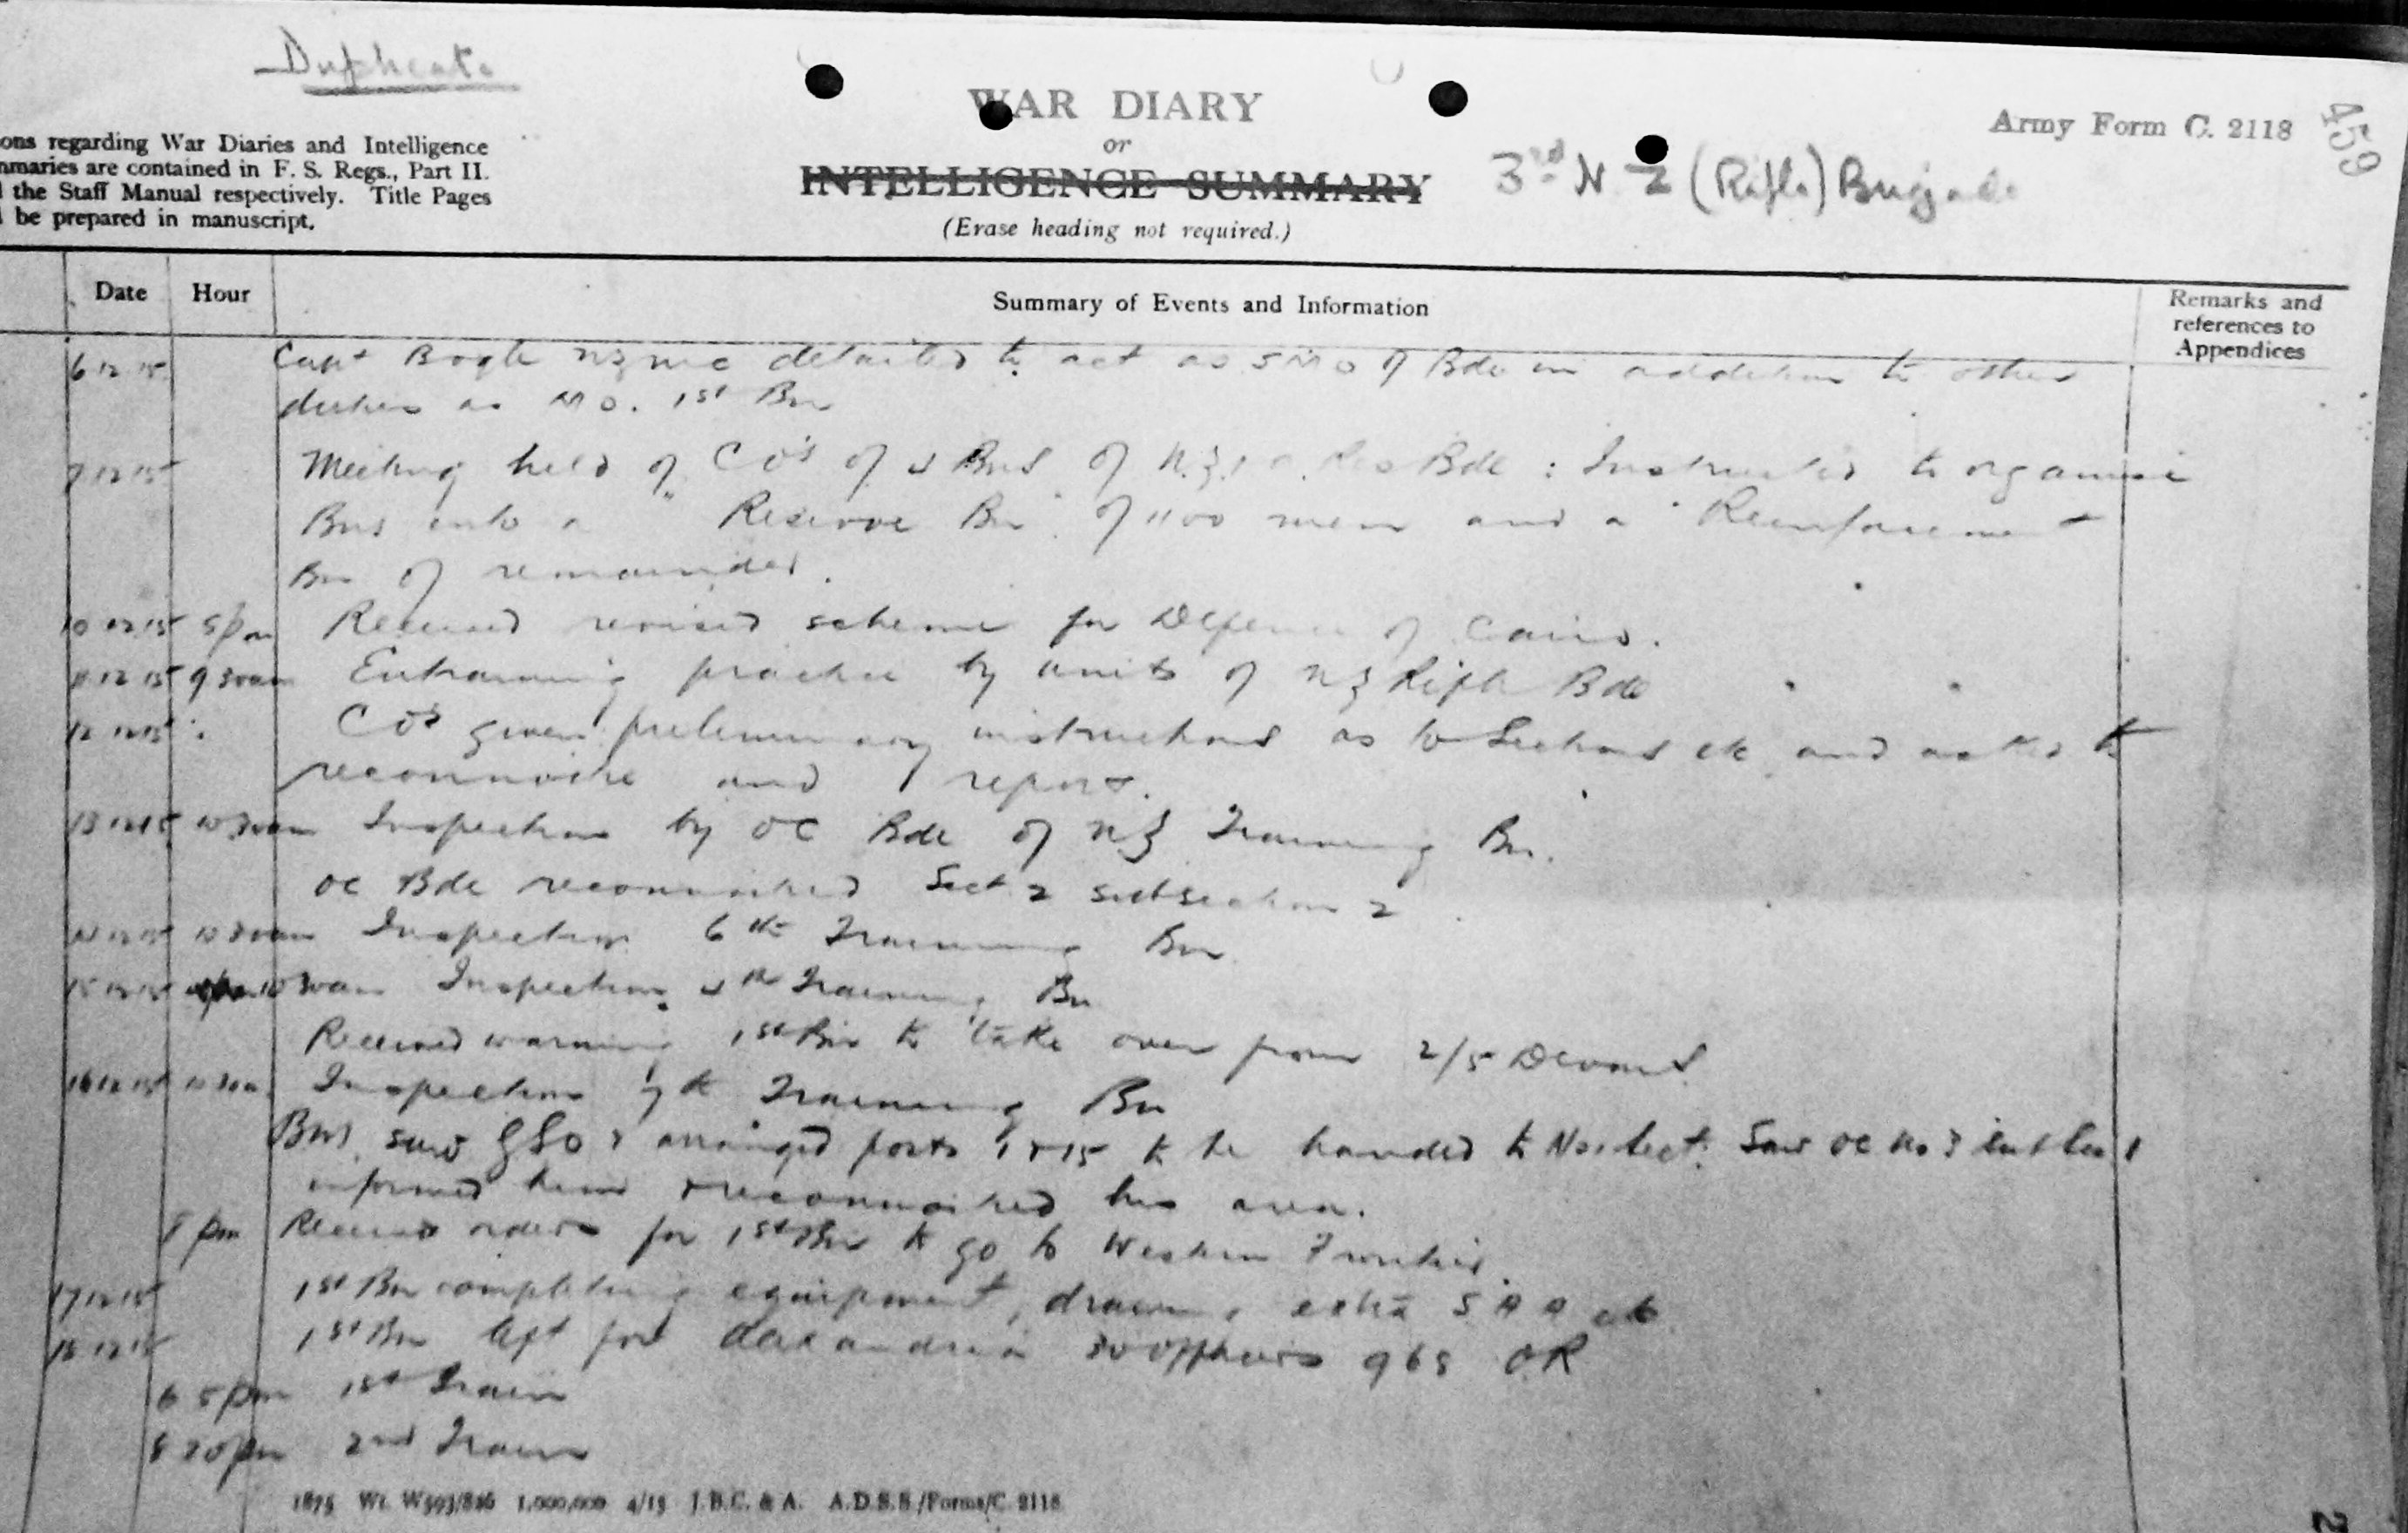 Duplicate
WAR DIARY
or
INTELLIGENCE SUMMARY
(Erase heading not required.)
Army Form C. 2118
459
3rd N Z (Rifle) Brigade
ons regarding War Diaries and Intelligence
mmaries are contained in F. S. Regs., Part II.
the Staff Manual respectively. Title Pages
be prepared in manuscript.
Date Hour Summary of Events and Information Remarks and
references to
Appendices
6 12 15 Capt Bogle NZMC detailed to act as SMO of Bde in addition to other
duties as MO. 1st Bn
7 12 15 Meeting held of CO's of Bns of N.Z. Res Bde : Instructed to organise
Bns into a "Reserve Bn" of 1100 men and a Reinforcement
Bn of remainder.
10 12 15 5pm Received revised scheme for Defence of Cairo.
11 12 15 9 30am Entraining practice by units of NZ Rifle Bde
12 12 15 COs given preliminary instructions as to Sections etc and asked to
reconnoitre and report.
13 12 15 10 30am Inspection by OC Bde of NZ Training Bn.
OC Bde reconnoitred Sect 2 subsection 2
14 12 15 10 30am Inspection 6th Training Bn
15 12 15 10 30am Inspection Training Bn
Received warning 1st Bn to take over from 2/5 Devons
16 12 15 Inspection 7th Training Bn
saw GSO arranged posts to be handed to Saw OC No 3
informed him & reconnoitred his area.
8 pm Received orders for 1st Bn to go to Western Frontier.
17 12 15 1st Bn completing equipment, drawing extra SAA etc
18 12 15 1st Bn left for Alexandria 30 officers 965 OR
6 5pm 1st Train
8 20pm 2nd Train
1875 Wt. W593/826 1,000,000 4/15 J.B.C. & A. A.D.S.S./Forms/C. 2118.
2